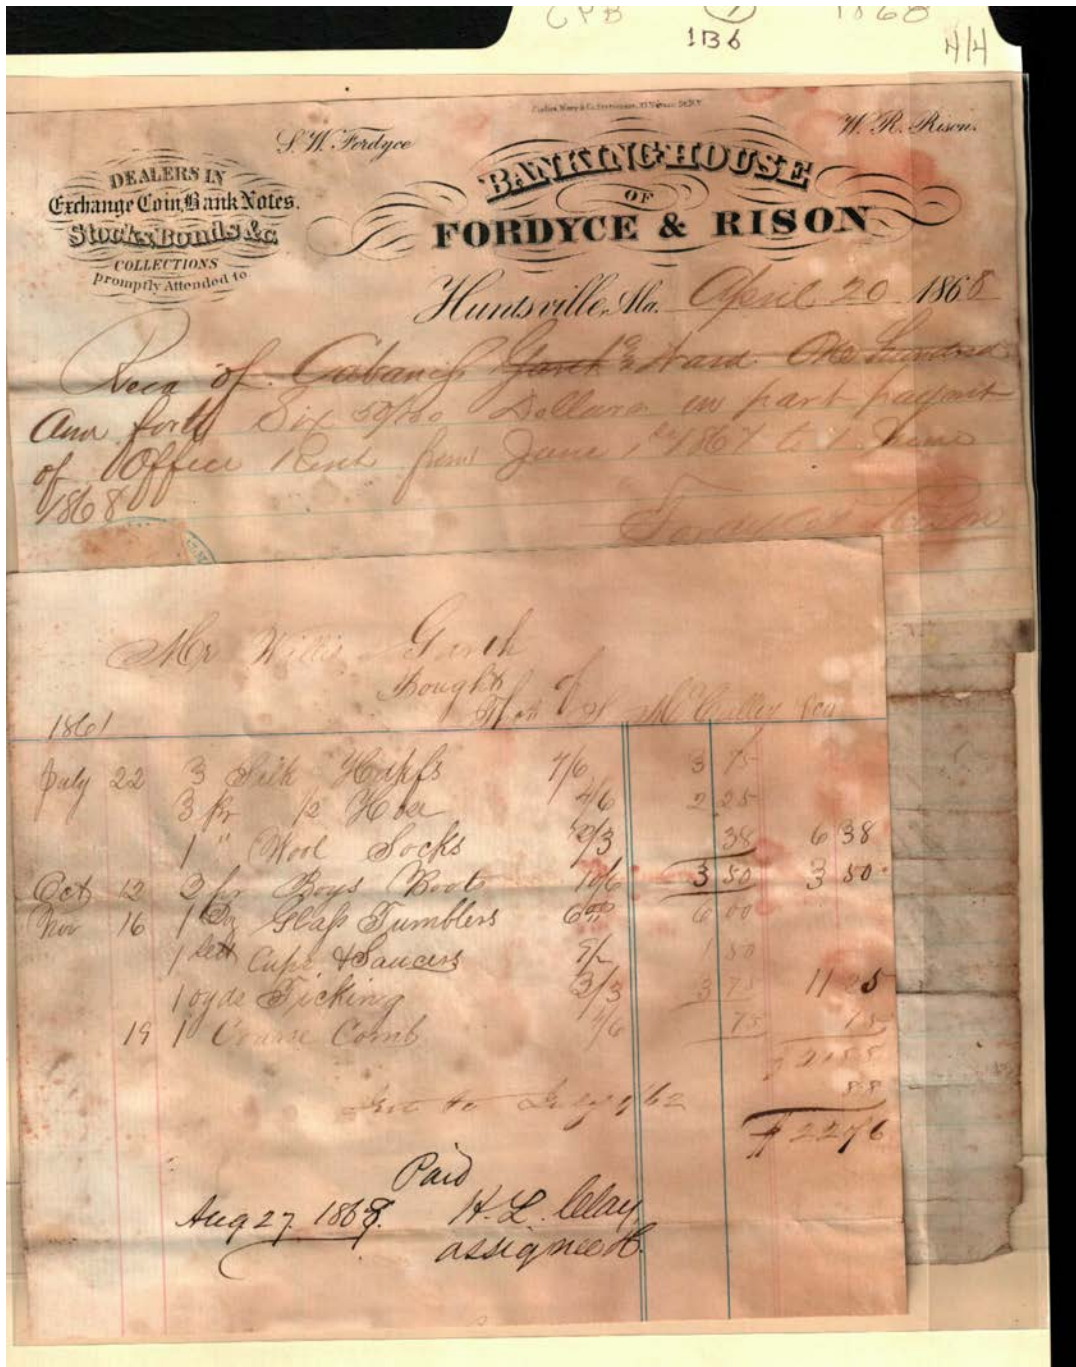 CPB 7 1868
1B6
S. W. Fordyce
W. R. Rison.
DEALERS IN
Exchange Coin, Bank Notes.
Stocks Bonds &c
COLLECTIONS
promptly Attended to
BANKING HOUSE
OF
FORDYCE & RISON
Huntsville, Ala. April 20 1868
Recd of Cabaniss & Ward One hundred
And forty Six 50/100 Dollars in part payment
of Office Rent from June 1st 1867 to 1 June
1868
Fordyce & Rison
Mr Willis Garth
Bought of
1861
July 22 3 Silk Hdkfs 7/6 3 75
3 pr 1/2 Hose 4/6 2 25
1 " Wool Socks 2/3 38 6 38
Oct 12 2 pr Boys Boots 10/6 3 50 3 50
Nov 16 1 Doz Glass Tumblers 6 00
1 Sett Cups & Saucers 9/- 1 50
10 yds Ticking 2/3 3 75 11 25
19 1 Coarse Comb 4/6 75 75
Int to July 1 62 88
$ 22 76
Paid
Aug 27 1868. H. L. Clay
assignee &c.